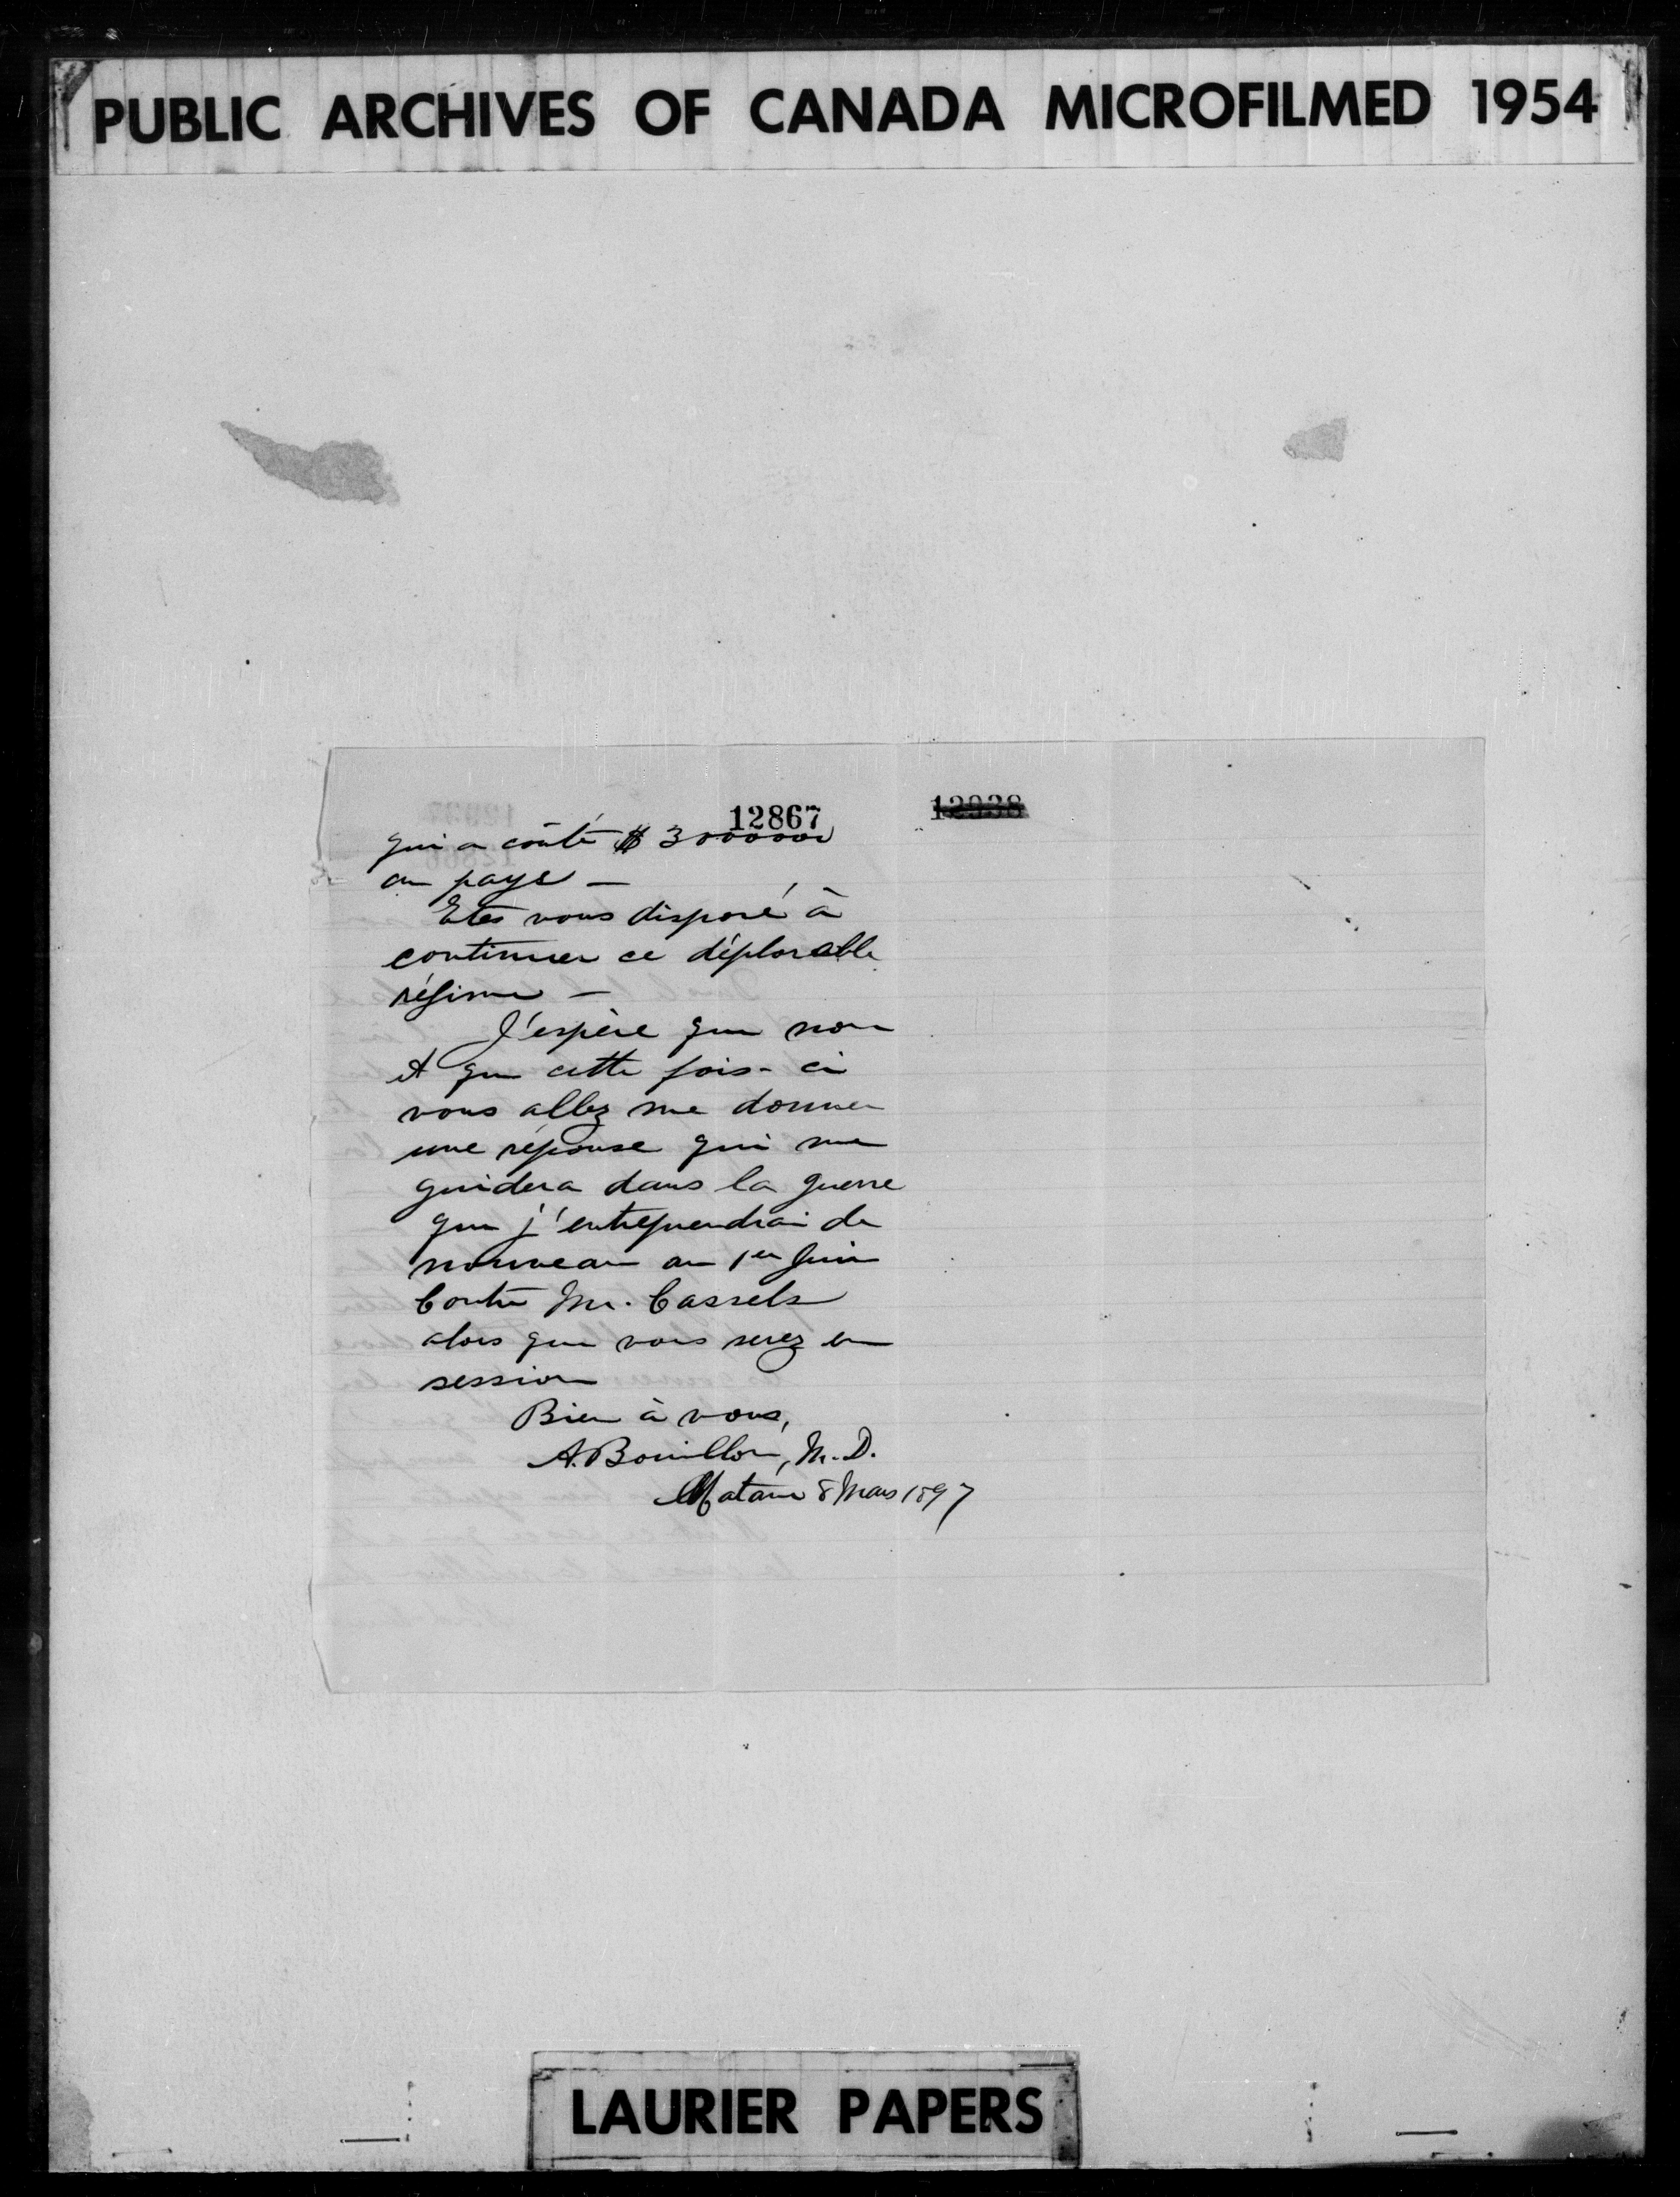 PUBLIC ARCHIVES OF CANADA MICROFILMED 1954
12867
12938
qui a coûté $ 3000000
au pays —
Etes vous disposé à
continuer ce déplorable
régime —
J'espère que non
et que cette fois-ci
vous allez me donner
une réponse qui me
guidera dans la guerre
que j'entreprendrai de
nouveau au 1er Juin
Contre Mr. Cassels
alors que vous serez en
session
Bien à vous,
A. Bouillon, M.D.
Matane 8 Mars 1897
LAURIER PAPERS